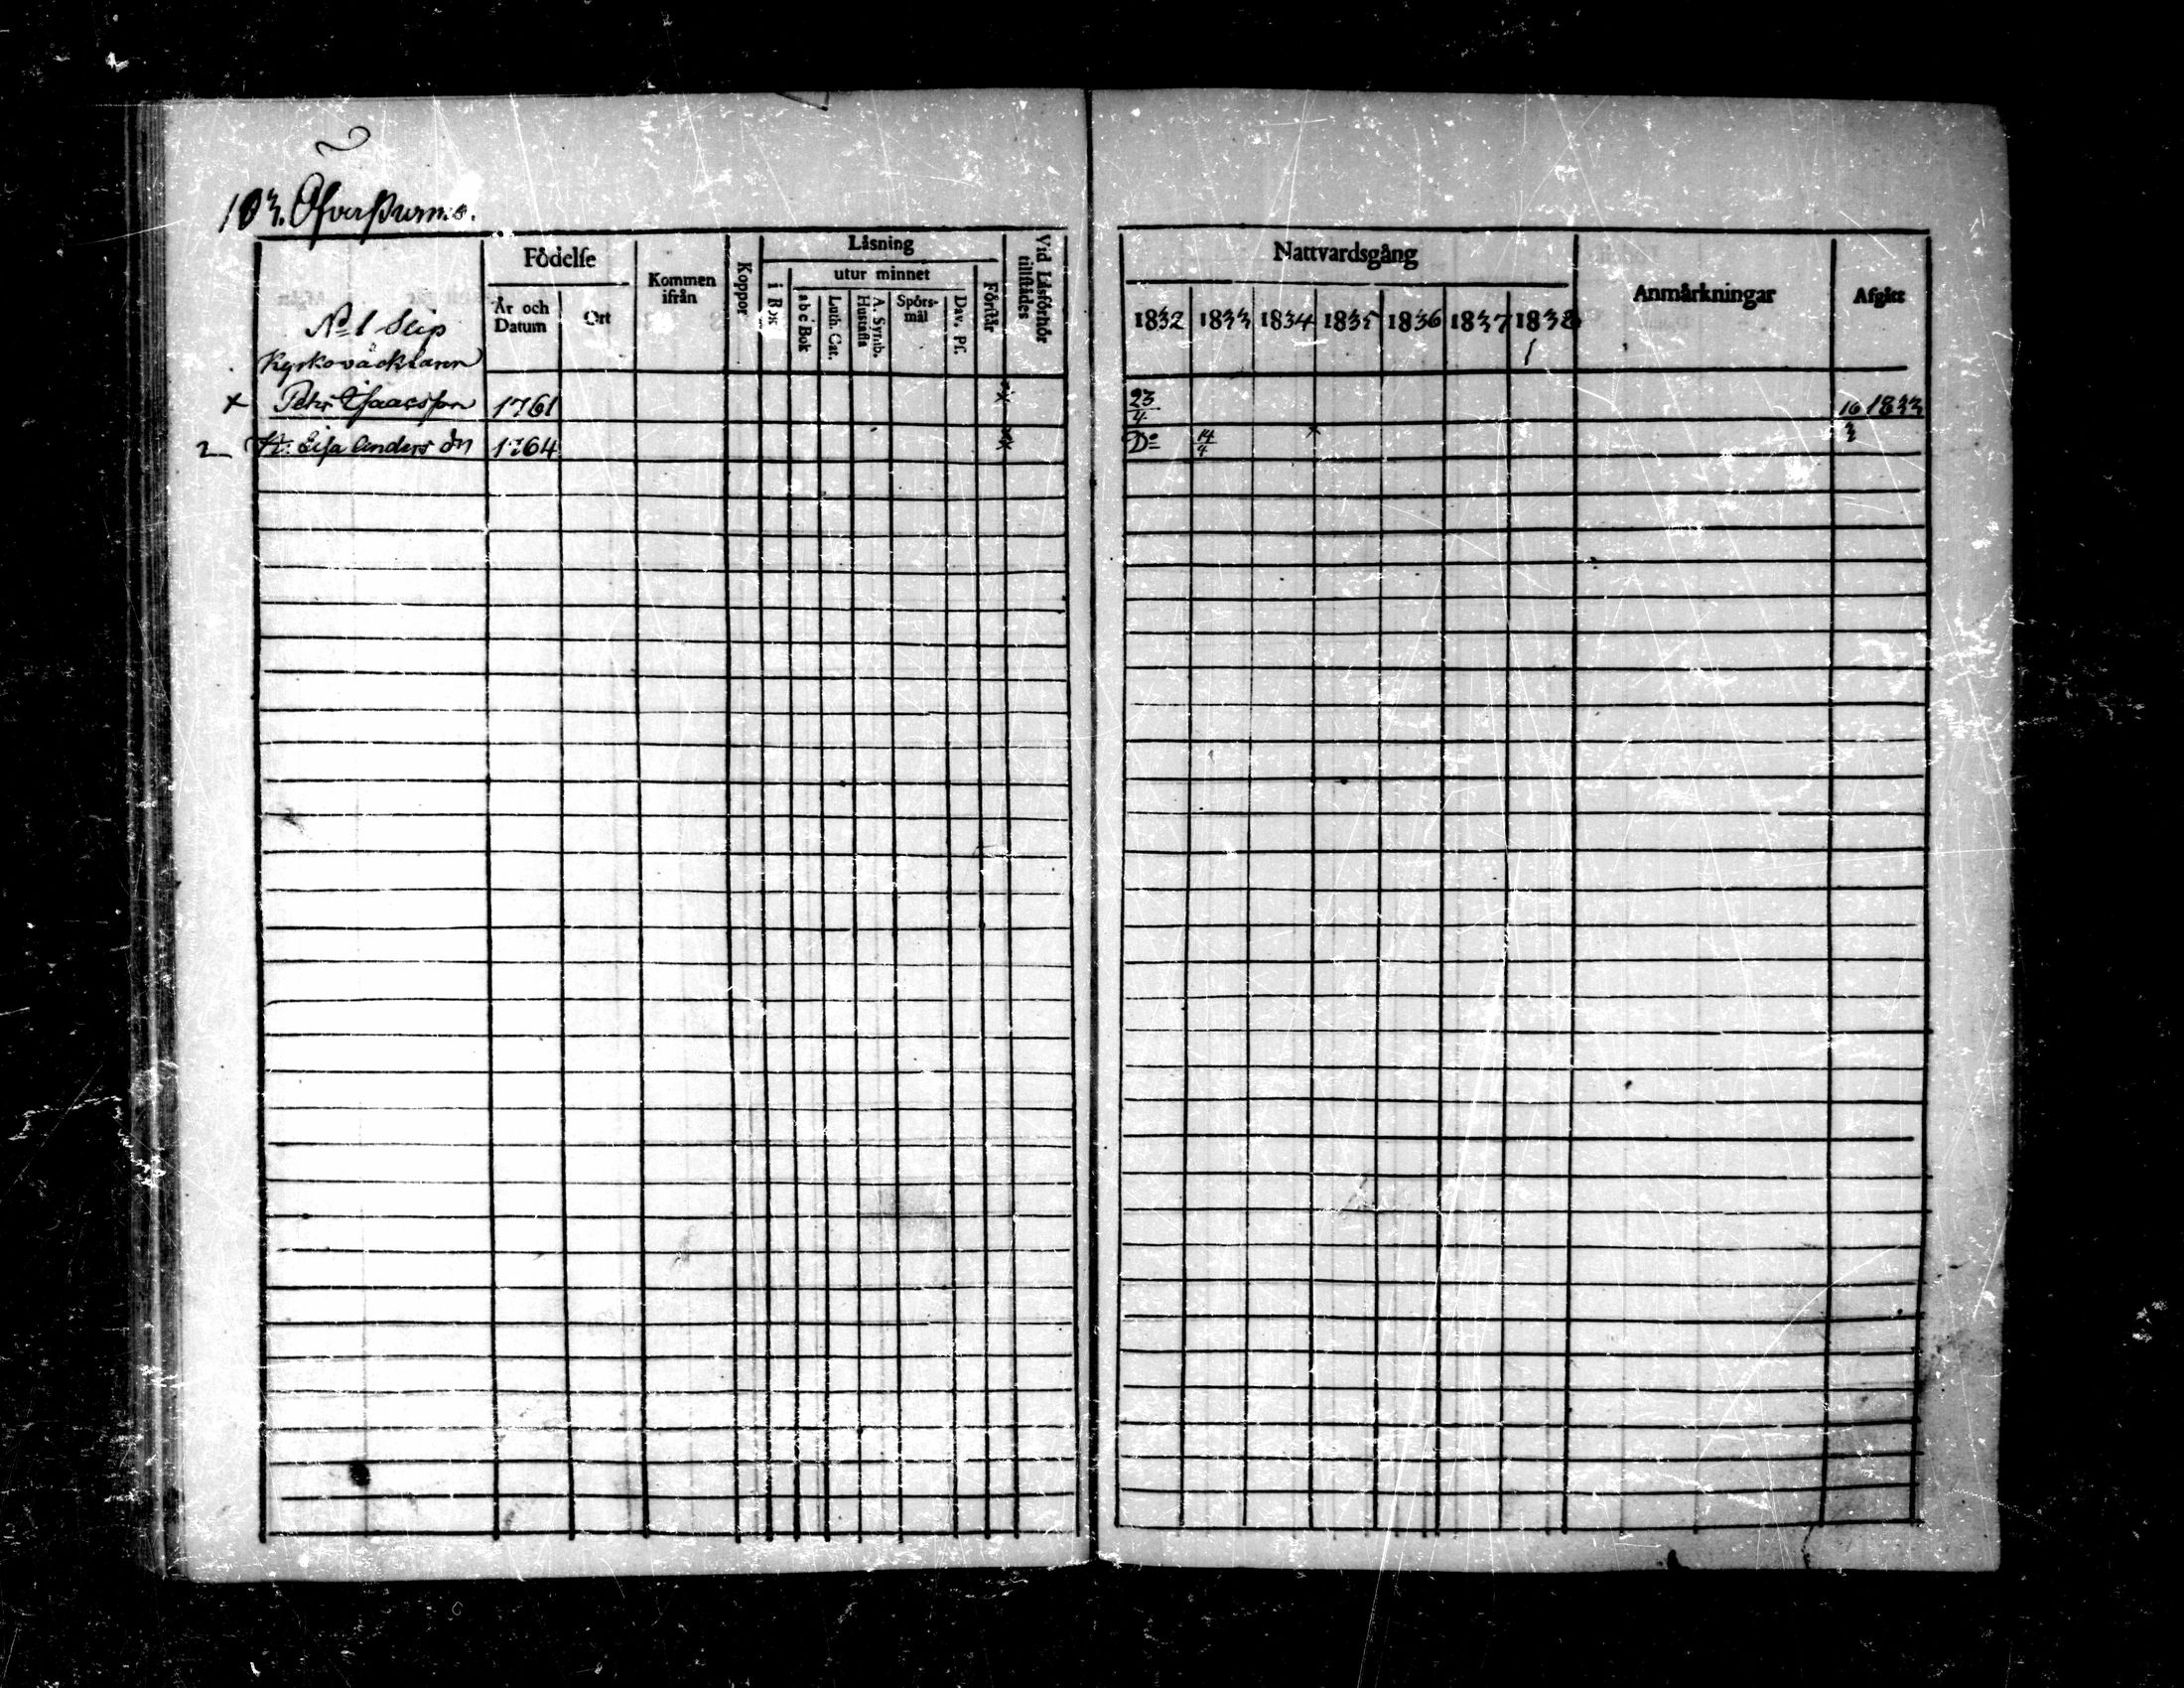 103. Öfverpurmo.
Födelse
Kommen ifrån
Koppor
Läsning
utur minnet
Vid Läsförhör tillstädes
År och Datum
Ort
i Bok
abc Bok
Luth. Cat.
A. Symb. Hustafla
Spörsmål
Dav. Ps.
Förstår
Nattvardsgång
Anmärkningar
Afgått
1832 1833 1834 1835 1836 1837 1838
No 1 Slip
Kyrkoväcktaren
x Petter Isaacsson 1761 23/4 16/3 1833
2 H. Lisa Anders dr 1764 Do 14/4